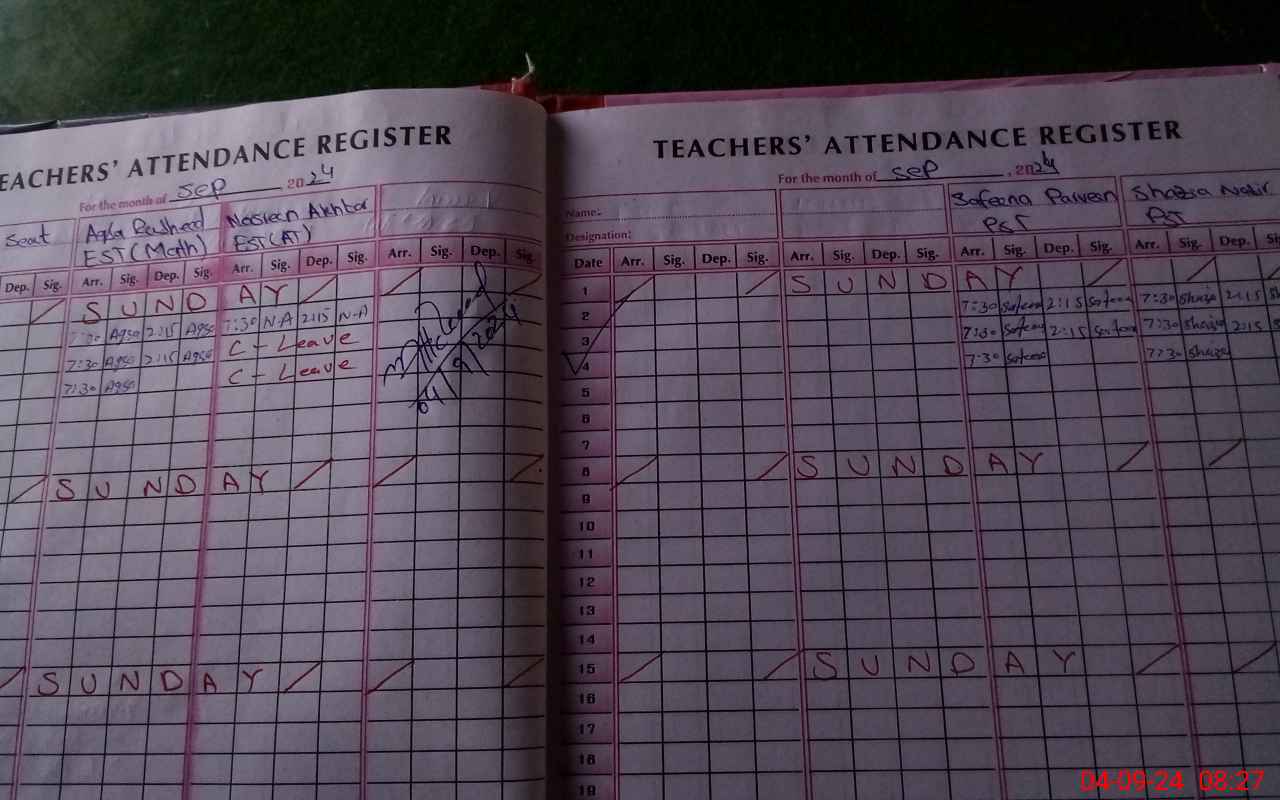 TEACHERS' ATTENDANCE REGISTER
For the month of Sep, 2024
Seat
Aqsa Rasheed
EST (Math)
Nasreen Akhtar
EST (AT)
Dep. Sig. Arr. Sig. Dep. Sig. Arr. Sig. Dep. Sig. Arr. Sig. Dep. Sig.
SUNDAY
7:30 Aqsa 2:15 Aqsa 7:30 N-A 2:15 N-A
7:30 Aqsa 2:15 Aqsa C - Leave
7:30 Aqsa C - Leave
04/9/2024
SUNDAY
SUNDAY
TEACHERS' ATTENDANCE REGISTER
For the month of Sep, 2024
Name:
Designation:
Safeena Parveen
PST
Shazia Nazir
PST
Date Arr. Sig. Dep. Sig. Arr. Sig. Dep. Sig. Arr. Sig. Dep. Sig. Arr. Sig. Dep.
1 SUNDAY
2 7:30 Safeena 2:15 Safeena 7:30 Shazia 2:15
3 7:30 Safeena 2:15 Safeena 7:30 Shazia 2:15
4 7:30 Safeena 7:30 Shazia
5
6
7
8 SUNDAY
9
10
11
12
13
14
15 SUNDAY
16
17
18
19
04-09-24 08:27